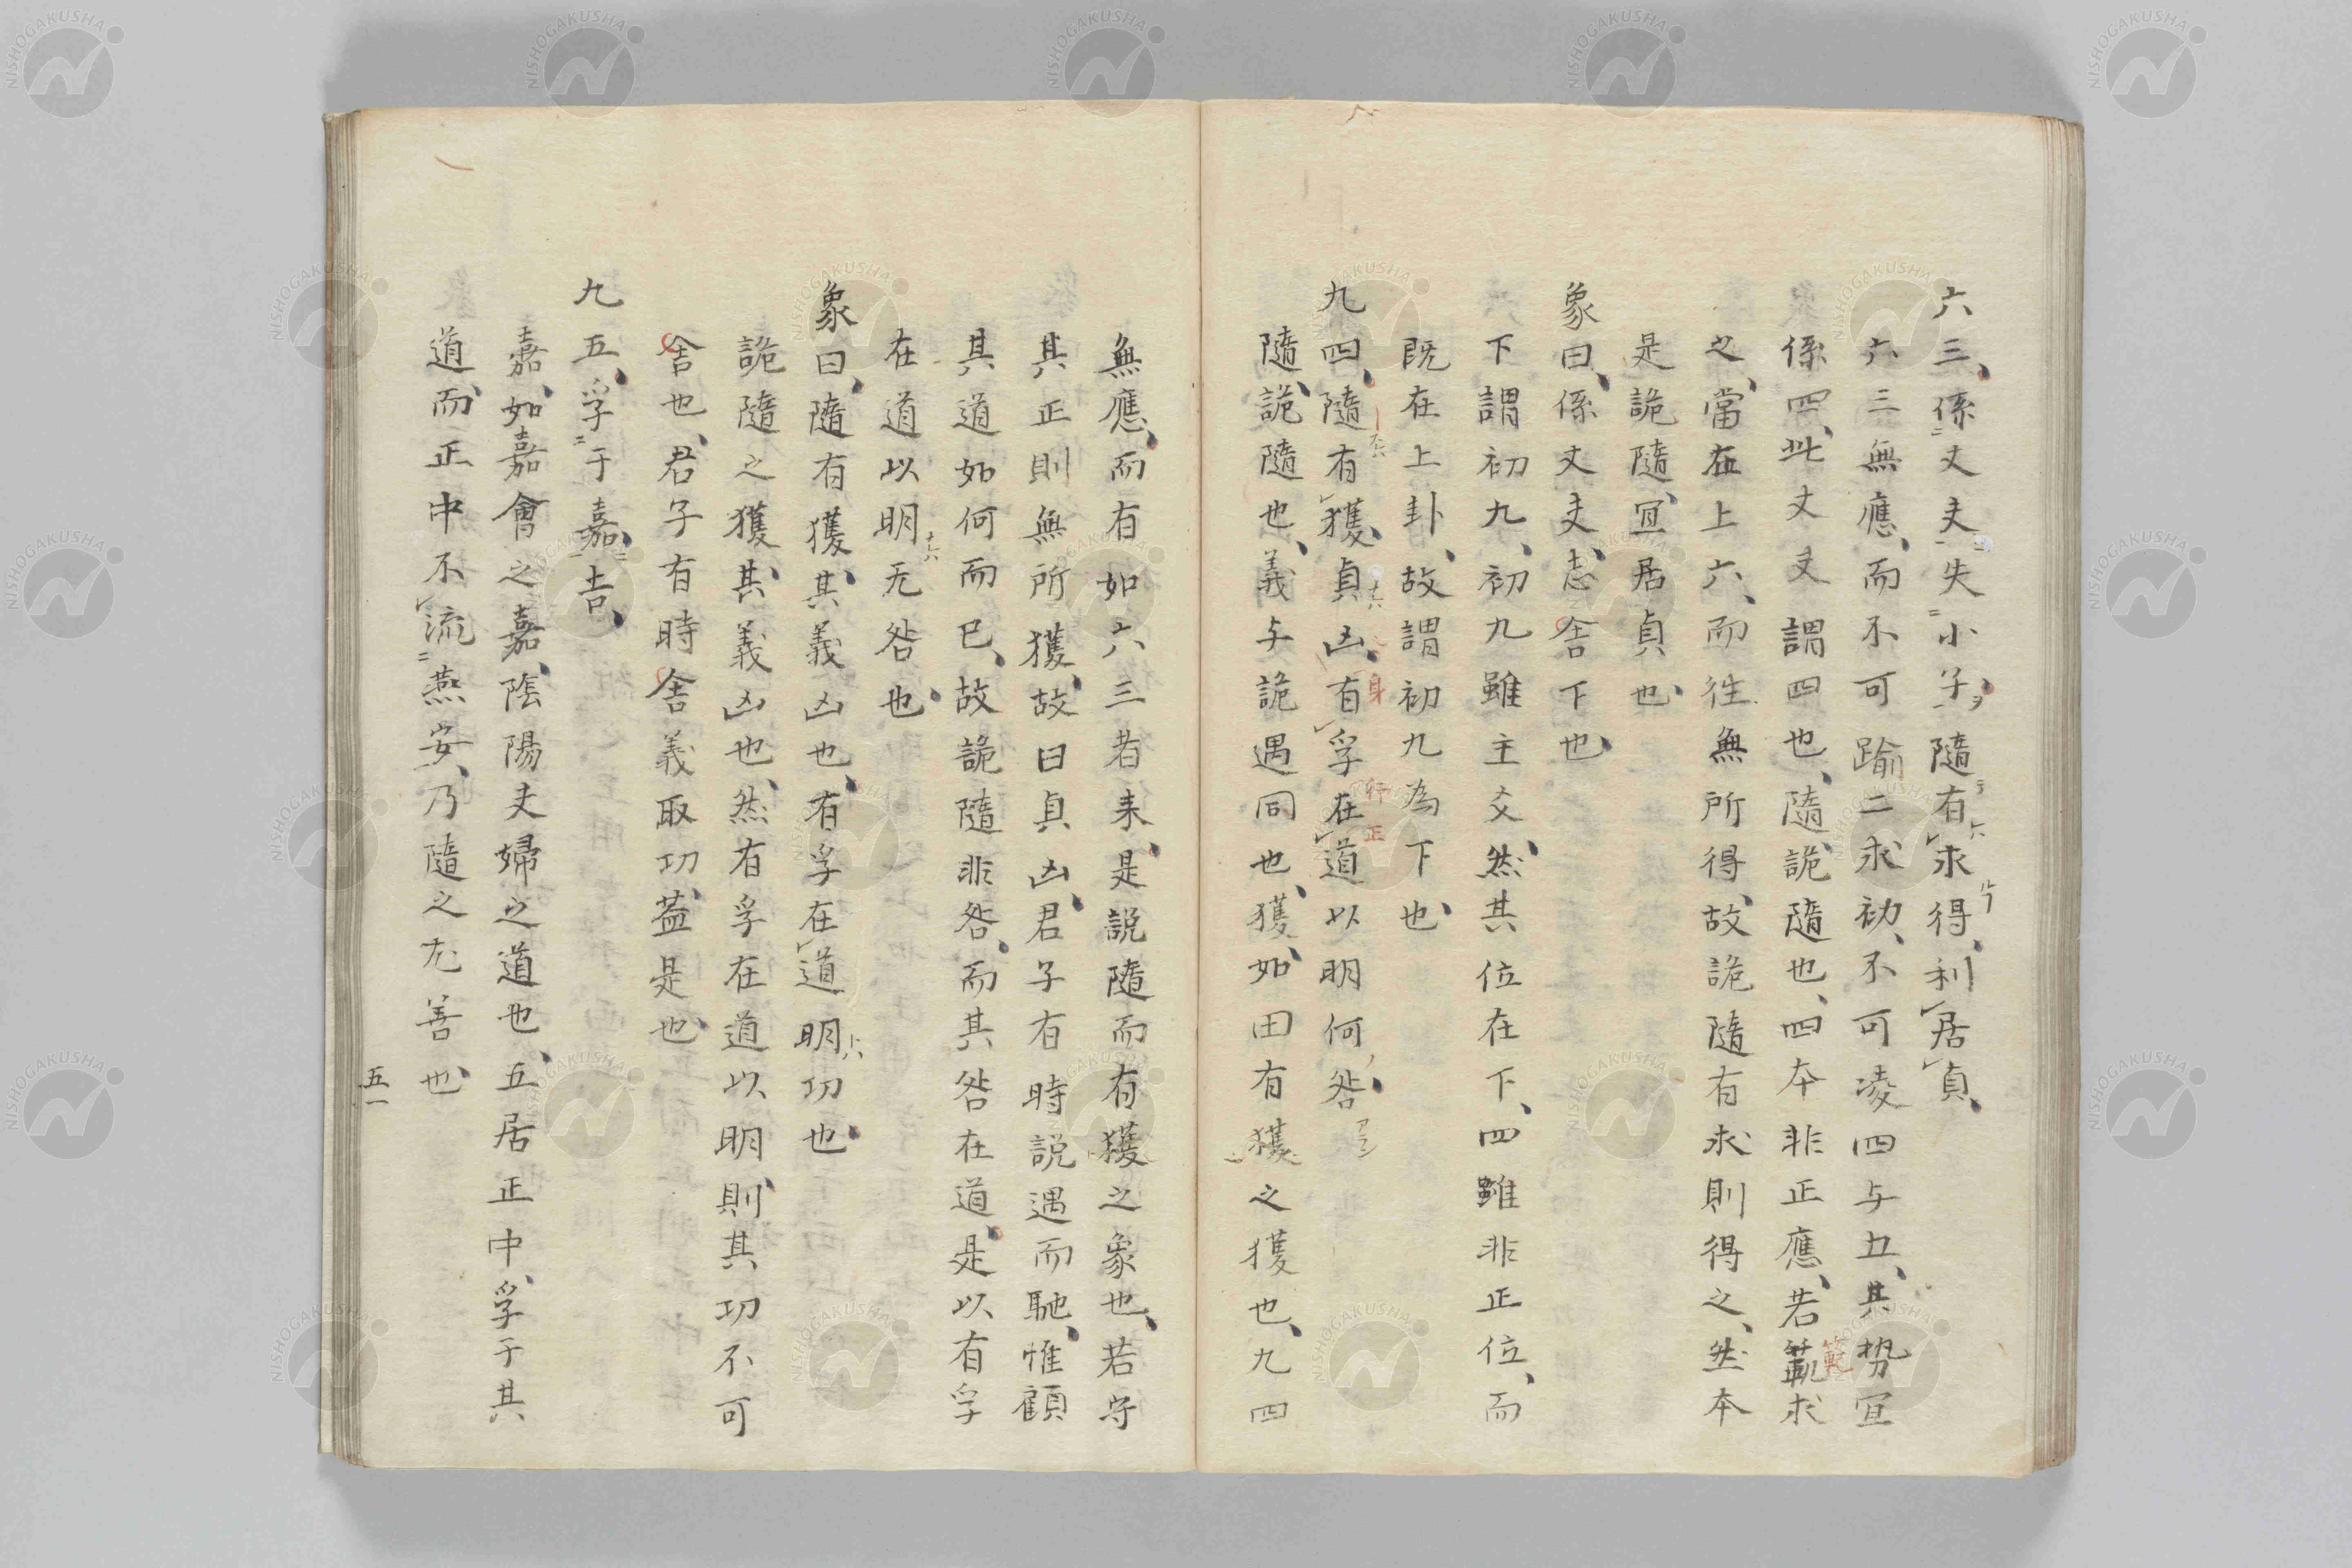 六三、係丈夫失小子、隨有求得、利居貞、
六三無應、而不可踰二求初、不可凌四与五、其勢宜
係四、此丈夫謂四也、隨詭隨也、四本非正應、若範求
之、當在上六、而往無所得、故詭隨有求則得之、然本
是詭隨、宜居貞也、
象曰、係丈夫、志舍下也、
下謂初九、初九雖主爻、然其位在下、四雖非正位、而
既在上卦、故謂初九為下也、
九四、隨有獲、貞凶、有孚在道以明何咎、
隨、詭隨也、義与詭遇同也、獲、如田有獲之獲也、九四
無應、而有如六三者来、是説隨而有獲之象也、若守
其正則無所獲、故曰貞凶、君子有時説遇而馳、惟顧
其道如何而已、故詭隨非咎、而其咎在道、是以有孚
在道以明无咎也、
象曰、隨有獲、其義凶也、有孚在道、明功也、
詭隨之獲、其義凶也、然有孚在道以明、則其功不可
舍也、君子有時舍義取功、蓋是也、
九五、孚于嘉、吉、
嘉、如嘉會之嘉、陰陽夫婦之道也、五居正中、孚于其
道、而正中不流燕安、乃隨之尤善也、
五一
NISHOGAKUSHA